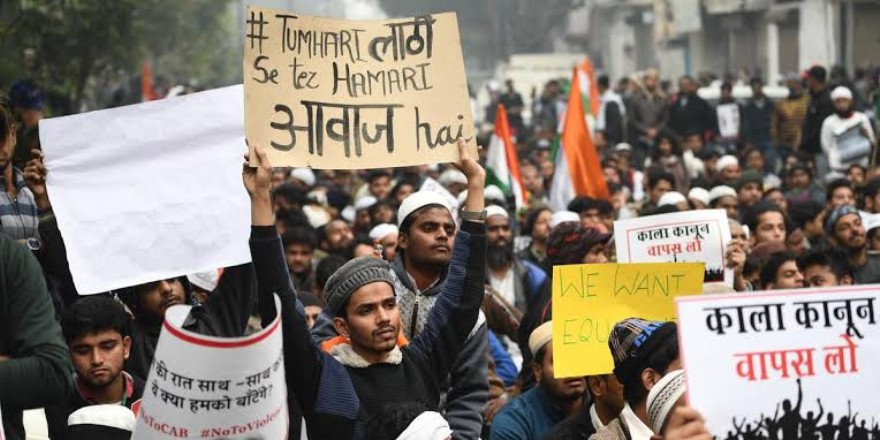 # TUMHARI लाठी
Se tez HAMARI
आवाज hai
काला कानून
वापस लो
WE WANT
काला कानून
वापस लो
की रात साथ-साथ
ये क्या हमको बाँटेंगे?
#NoToCAB #NoToViolence